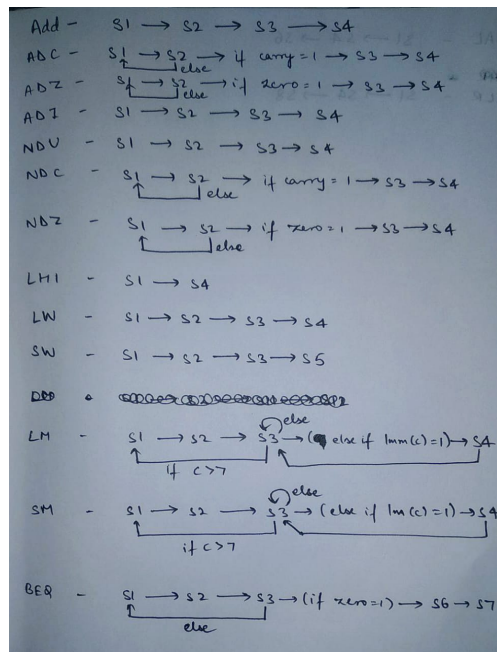 Add - S1 → S2 → S3 → S4
ADC - S1 → S2 → if carry = 1 → S3 → S4
else
ADZ - S1 → S2 → if zero = 1 → S3 → S4
else
ADI - S1 → S2 → S3 → S4
NDU - S1 → S2 → S3 → S4
NDC - S1 → S2 → if carry = 1 → S3 → S4
else
NDZ - S1 → S2 → if zero = 1 → S3 → S4
else
LHI - S1 → S4
LW - S1 → S2 → S3 → S4
SW - S1 → S2 → S3 → S5
else
LM - S1 → S2 → S3 → ( else if Imm(c) = 1) → S4
if c > 7
else
SM - S1 → S2 → S3 → (else if Im(c) = 1) → S4
if c > 7
BEQ - S1 → S2 → S3 → (if zero = 1) → S6 → S7
else